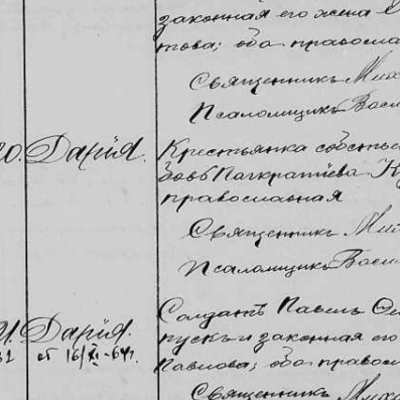 законная его жена
това; оба православн
Священникъ Мих
Псаломщикъ Васи
Дарія. Крестьянка собствен
бовь Панкратіева
православная
Священникъ Мих
Псаломщикъ Васи
Солдатъ Павелъ
Дарія. пускъ и законная его
Павлова; оба правосл
Священникъ Мих